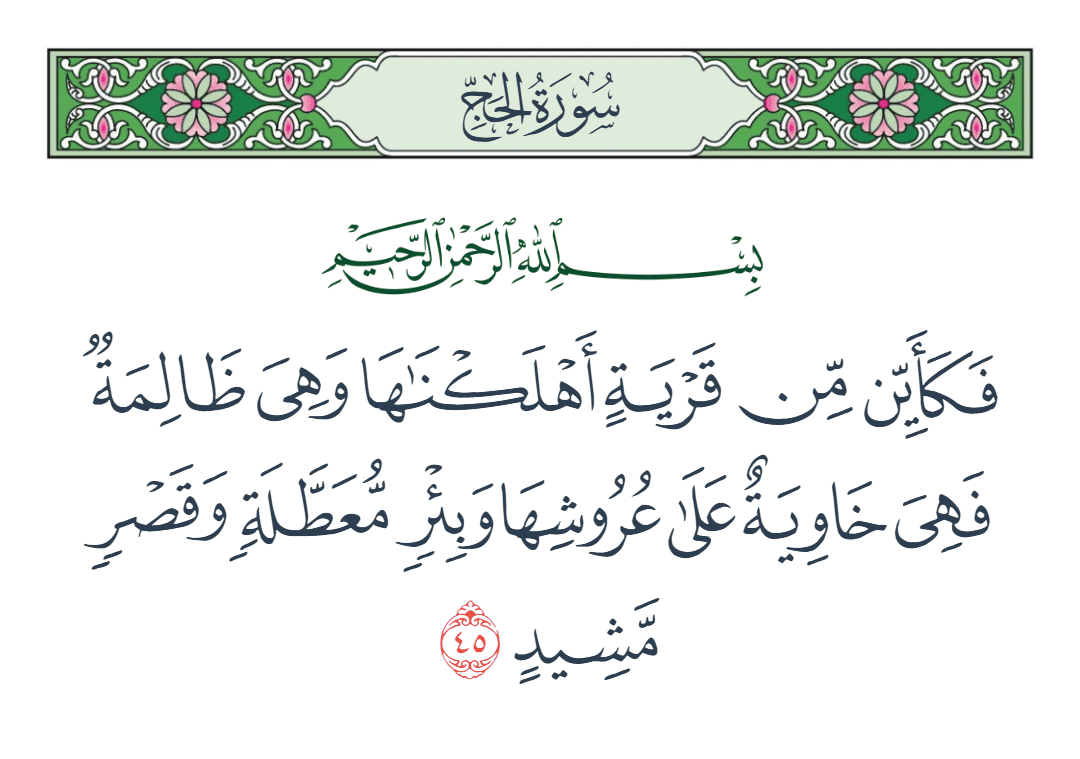 سُورَةُ الحَجِّ
بِسْمِ ٱللَّهِ ٱلرَّحْمَٰنِ ٱلرَّحِيمِ
فَكَأَيِّن مِّن قَرْيَةٍ أَهْلَكْنَٰهَا وَهِىَ ظَالِمَةٌ
فَهِىَ خَاوِيَةٌ عَلَىٰ عُرُوشِهَا وَبِئْرٍ مُّعَطَّلَةٍ وَقَصْرٍ
مَّشِيدٍ ٤٥